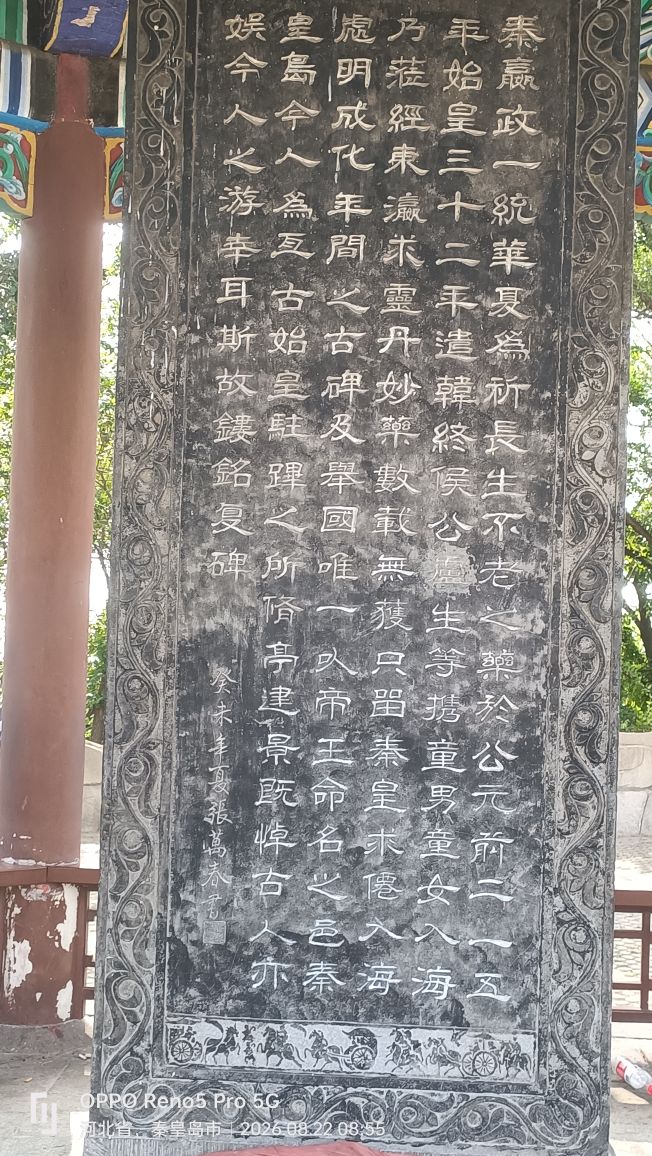 秦嬴政一統華夏為祈長生不老之藥於公元前二一五
年始皇三十二年遣韓終侯公盧生等携童男童女入海
乃蒞經東瀛求靈丹妙藥數載無獲只留秦皇求僊入海
處明成化年間之古碑及舉國唯一以帝王命名之邑秦
皇島今人為亙古始皇駐蹕之所脩亭建景既悼古人亦
娱今人之游幸耳斯故鏤銘复碑
癸未年夏張萬春書
OPPO Reno5 Pro 5G
河北省、秦皇岛市 | 2026.08.22 08:55